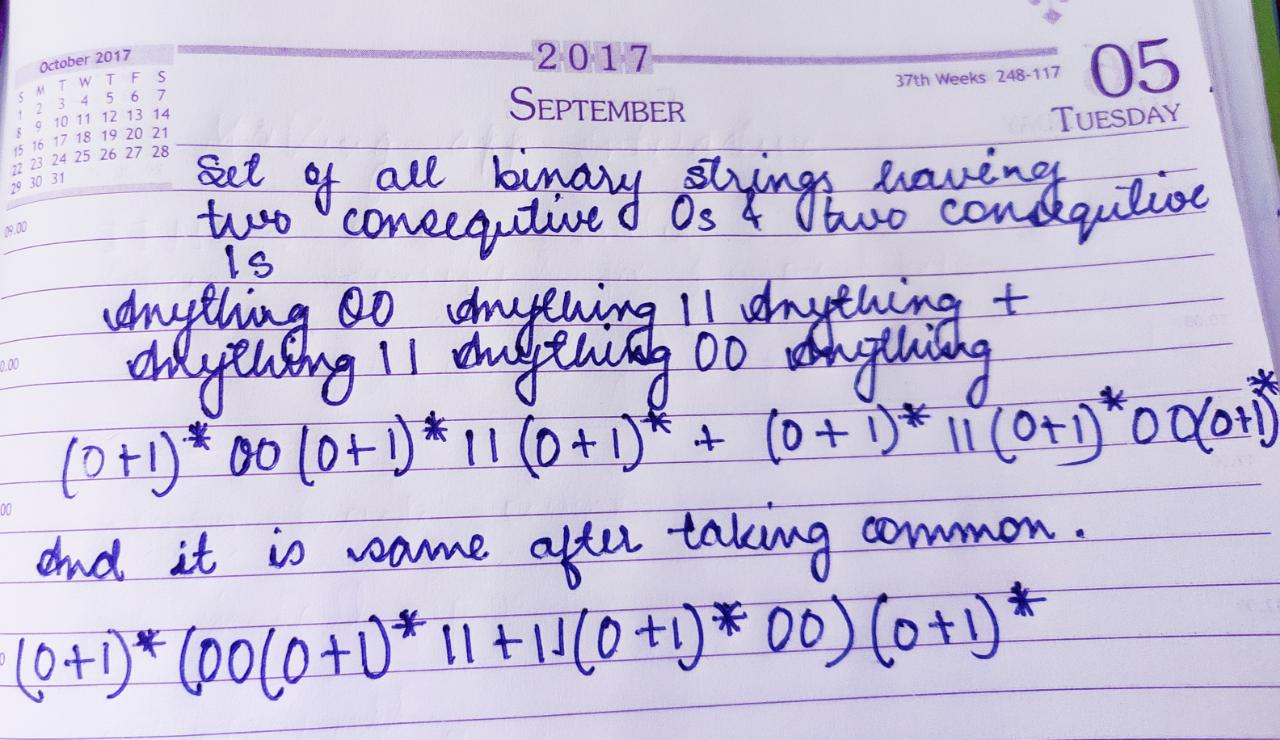 October 2017
S M T W T F S
1 2 3 4 5 6 7
8 9 10 11 12 13 14
15 16 17 18 19 20 21
22 23 24 25 26 27 28
29 30 31
2017
SEPTEMBER
37th Weeks 248-117
05
TUESDAY
09.00
Set of all binary strings having
two consequtive 0s & two consequtive
1s
Anything 00 Anything 11 Anything +
Anything 11 Anything 00 Anything
(0+1)* 00 (0+1)* 11 (0+1)* + (0+1)* 11 (0+1)* 00(0+1)*
And it is same after taking common.
(0+1)* (00(0+1)* 11 + 11(0+1)* 00) (0+1)*